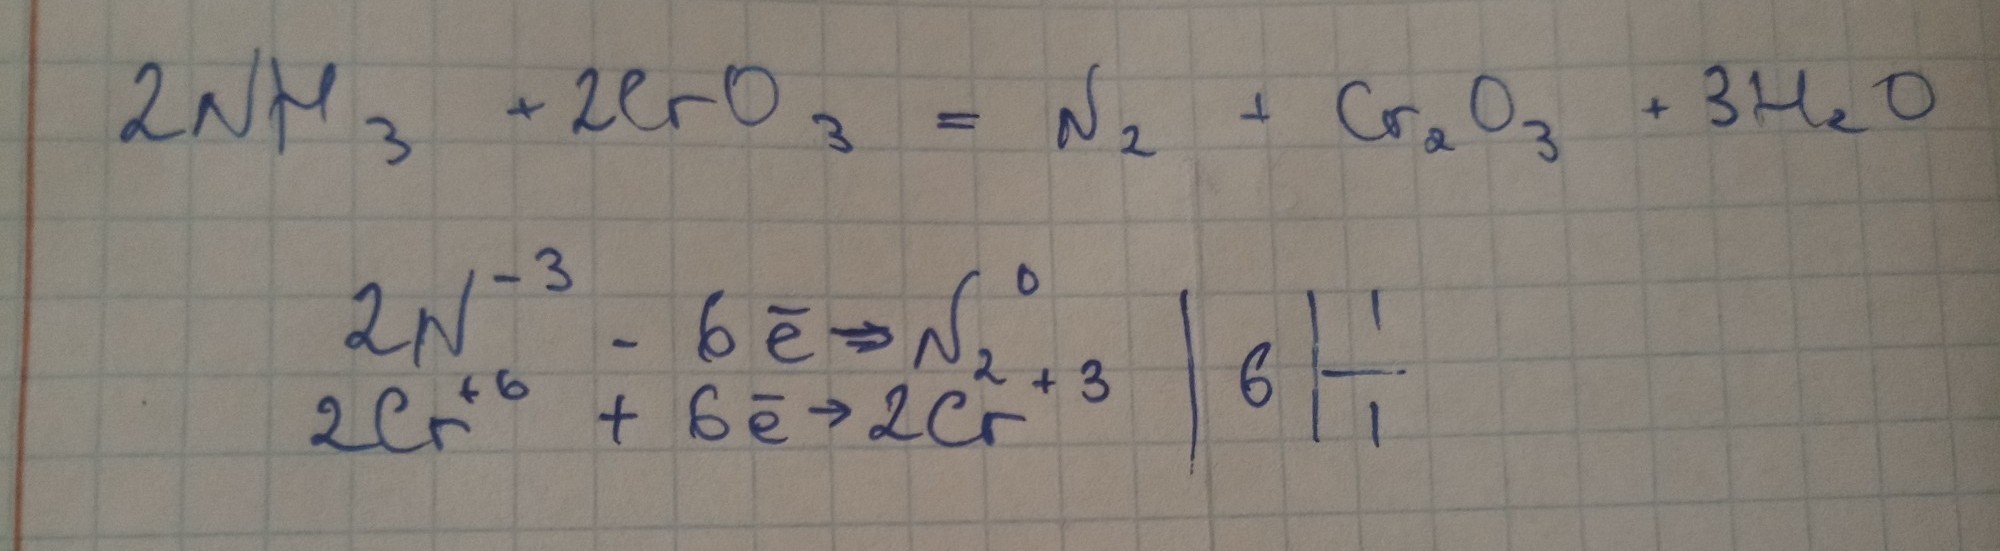 2NH₃ + 2CrO₃ = N₂ + Cr₂O₃ + 3H₂O
2N⁻³ - 6ē → N₂⁰ | 6 | 1
2Cr⁺⁶ + 6ē → 2Cr⁺³ | | 1